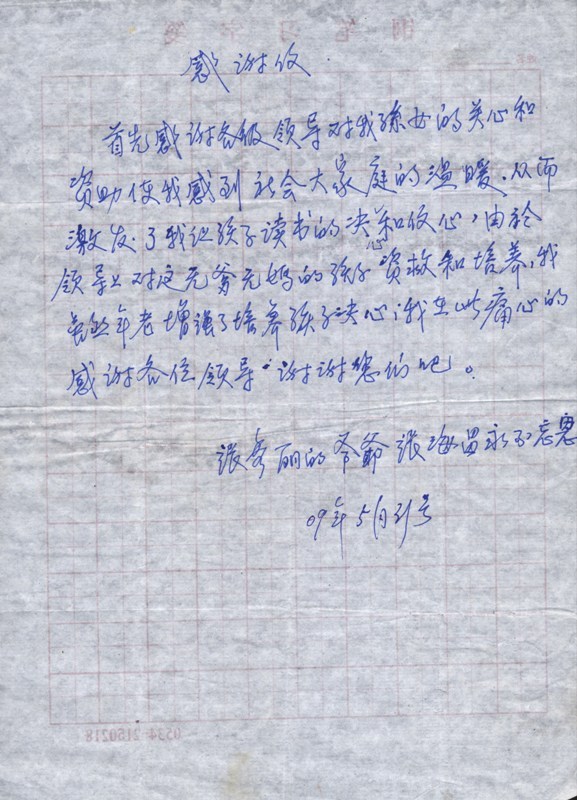 感谢信
首先感谢各级领导对我孙女的关心和
资助使我感到社会大家庭的温暖.从而
激发了我让孩子读书的决心和信心,由於
领导对这无爹无妈的孩子资救和培养,我
虽然年老增强了培养孩子决心,我在此痛心的
感谢各位领导"谢谢您们吧。
张秀丽的爷爷张海昌永不忘恩
09年5月31号
0534-2150218